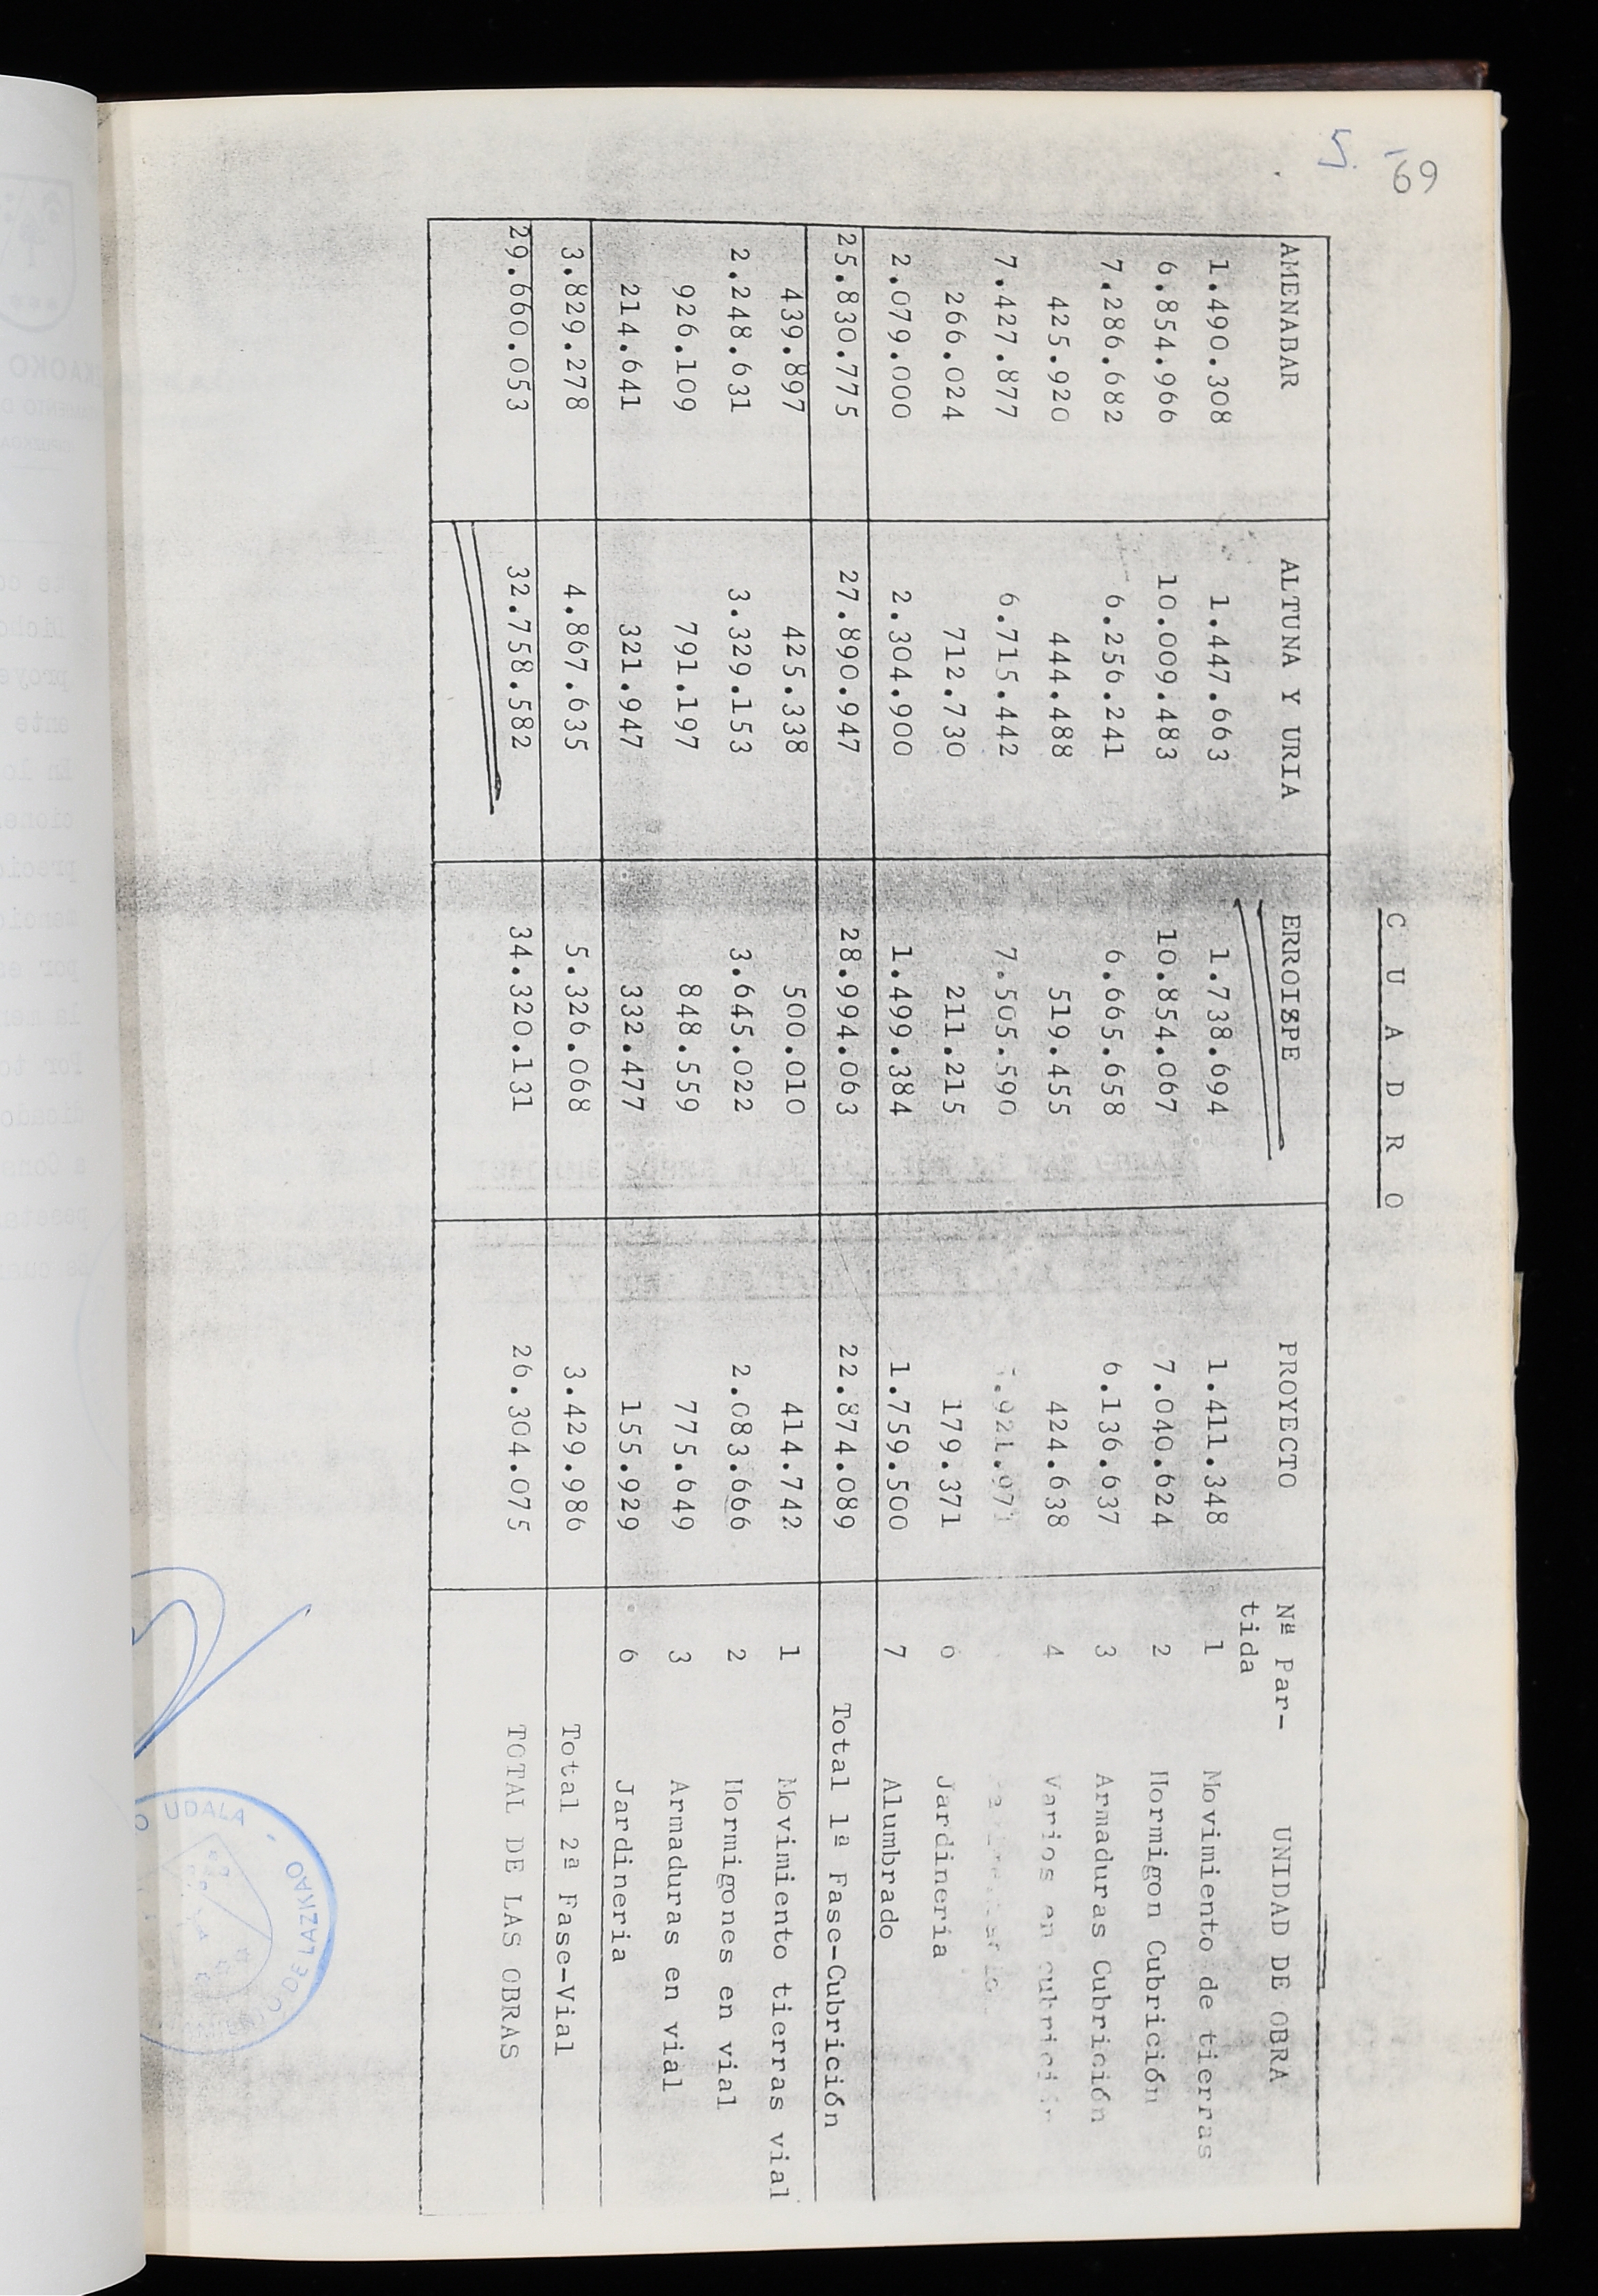 69
5.
C U A D R O
AMENABAR ALTUNA Y URIA ERROIZPE PROYECTO Nª Par- UNIDAD DE OBRA
tida
1.490.308 1.447.663 1.738.694 1.411.348 1 Movimiento de tierras
6.854.966 10.009.483 10.854.067 7.040.624 2 Hormigon Cubrición
7.286.682 6.256.241 6.665.658 6.136.637 3 Armaduras Cubrición
425.920 444.488 519.455 424.638 4 Varios en cubrición
7.427.877 6.715.442 7.505.590
266.024 712.730 211.215 179.371 6 Jardineria
2.079.000 2.304.900 1.499.384 1.759.500 7 Alumbrado
25.830.775 27.890.947 28.994.063 22.874.089 Total 1ª Fase-Cubrición
439.897 425.338 500.010 414.742 1 Movimiento tierras vial
2.248.631 3.329.153 3.645.022 2.083.666 2 Hormigones en vial
926.109 791.197 848.559 775.649 3 Armaduras en vial
214.641 321.947 332.477 155.929 6 Jardineria
3.829.278 4.867.635 5.326.068 3.429.986 Total 2ª Fase-Vial
29.660.053 32.758.582 34.320.131 26.304.075 TOTAL DE LAS OBRAS
UDALA
DE LAZKAO